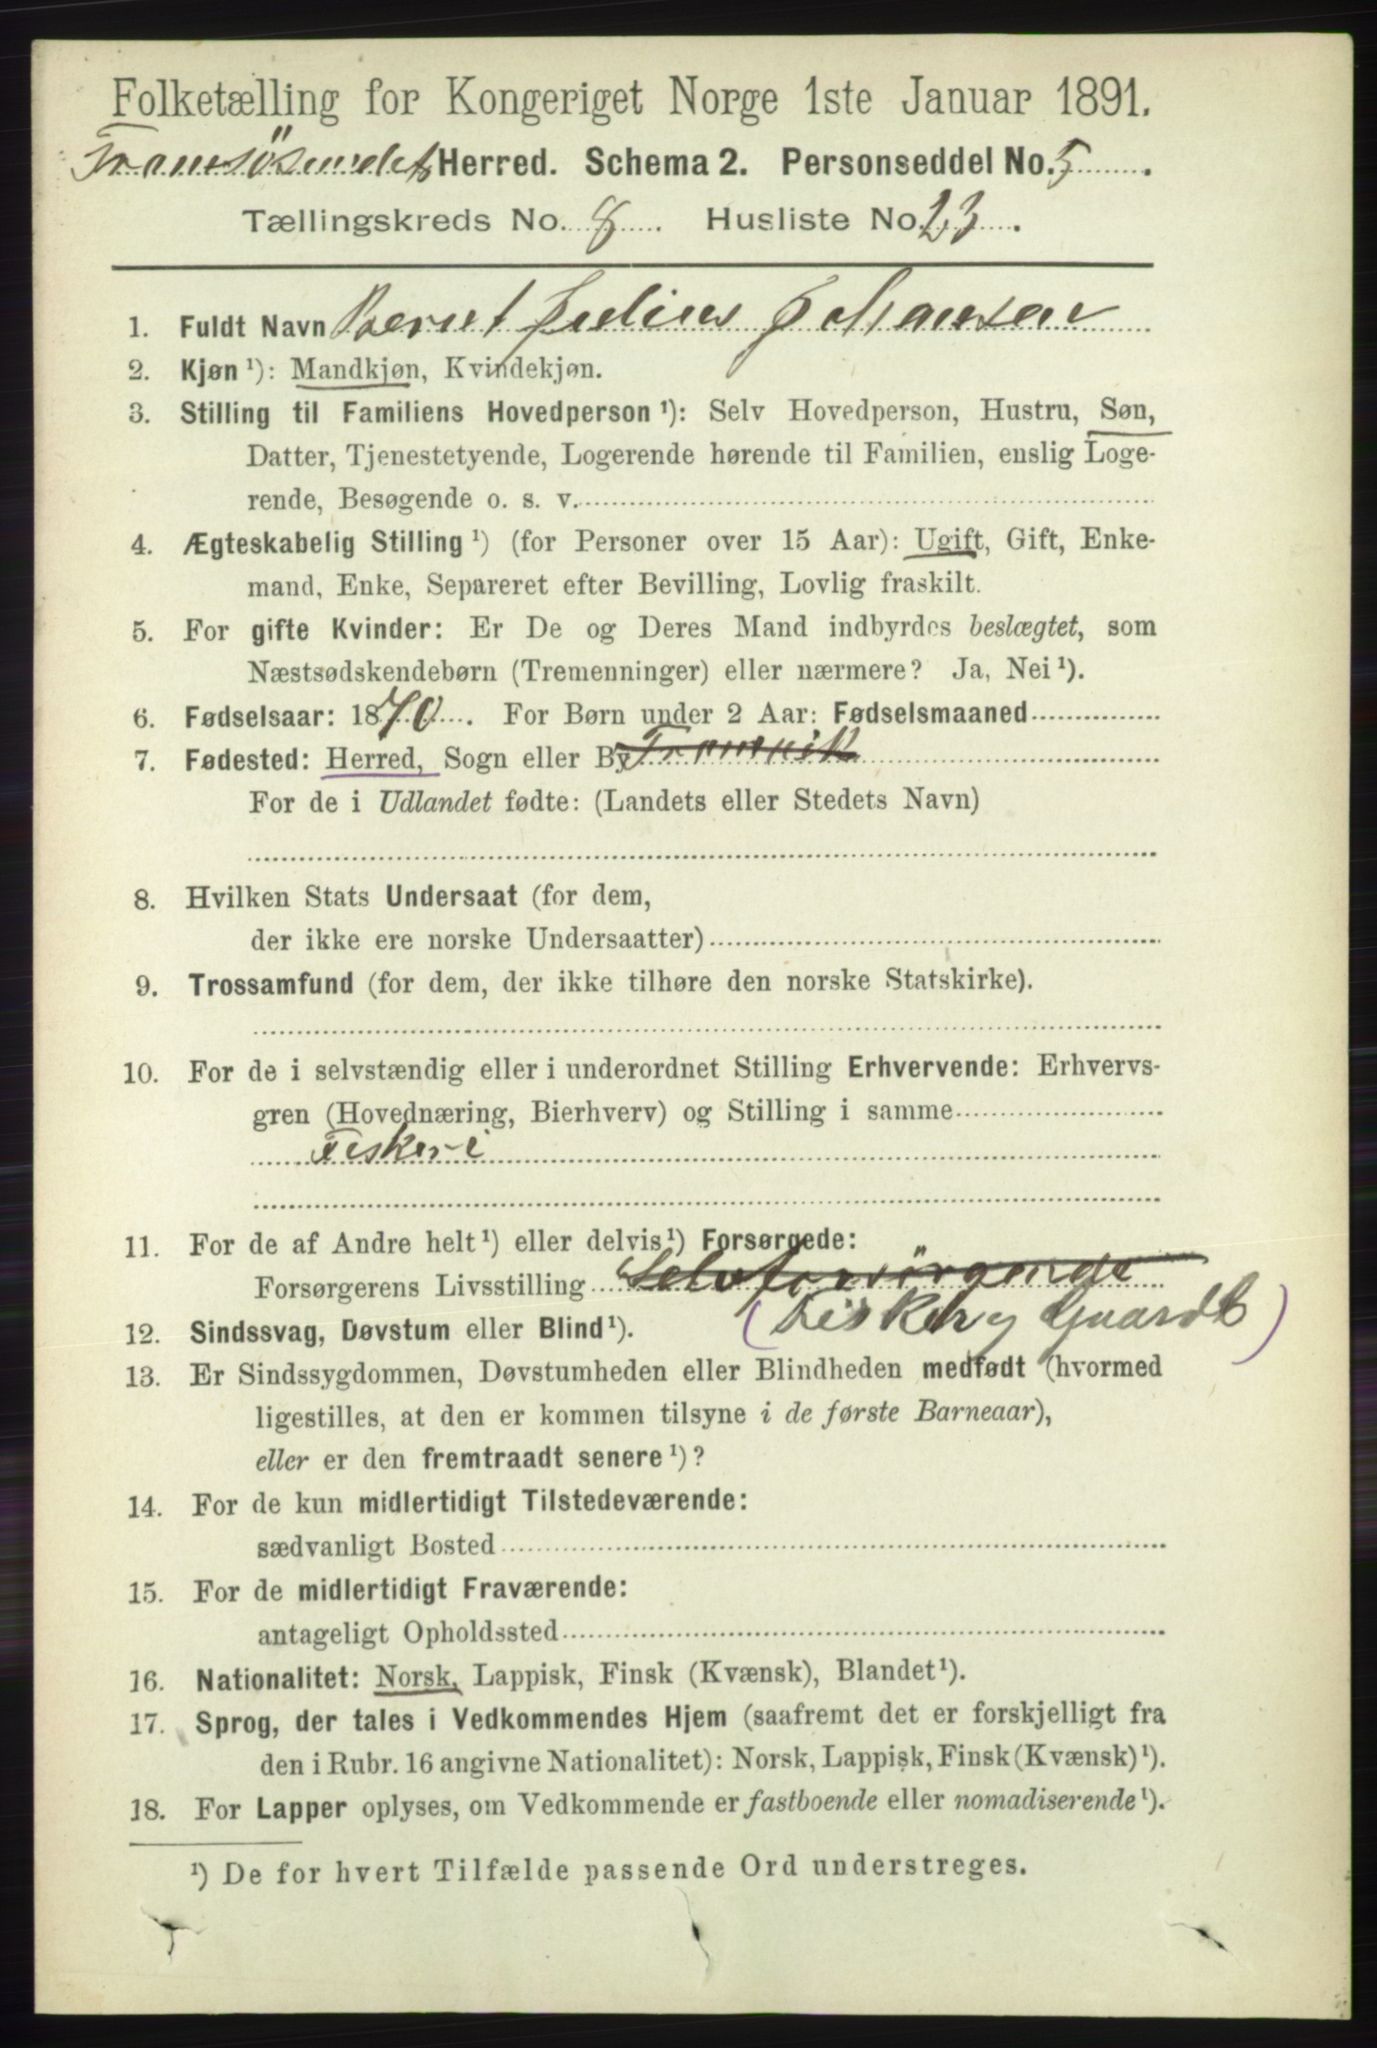 Folketælling for Kongeriget Norge 1ste Januar 1891.
Tromsøsundets Herred. Schema 2. Personseddel No. 5
Tællingskreds No. 8 Husliste No. 23.
1. Fuldt Navn Bernt Julius Johansen
2. Kjøn ¹): Mandkjøn, Kvindekjøn.
3. Stilling til Familiens Hovedperson ¹): Selv Hovedperson, Hustru, Søn,
Datter, Tjenestetyende, Logerende hørende til Familien, enslig Loge-
rende, Besøgende o. s. v.
4. Ægteskabelig Stilling ¹) (for Personer over 15 Aar): Ugift, Gift, Enke-
mand, Enke, Separeret efter Bevilling, Lovlig fraskilt.
5. For gifte Kvinder: Er De og Deres Mand indbyrdes beslægtet, som
Næstsødskendebørn (Tremenninger) eller nærmere? Ja, Nei ¹).
6. Fødselsaar: 1870. For Børn under 2 Aar: Fødselsmaaned
7. Fødested: Herred, Sogn eller By Tromvik
For de i Udlandet fødte: (Landets eller Stedets Navn)
8. Hvilken Stats Undersaat (for dem,
der ikke ere norske Undersaatter)
9. Trossamfund (for dem, der ikke tilhøre den norske Statskirke).
10. For de i selvstændig eller i underordnet Stilling Erhvervende: Erhvervs-
gren (Hovednæring, Bierhverv) og Stilling i samme
Fiskeri
11. For de af Andre helt ¹) eller delvis ¹) Forsørgede:
Forsørgerens Livsstilling Selvforsörgende
(Fisker og Guardb)
12. Sindssvag, Døvstum eller Blind ¹).
13. Er Sindssygdommen, Døvstumheden eller Blindheden medfødt (hvormed
ligestilles, at den er kommen tilsyne i de første Barneaar),
eller er den fremtraadt senere ¹)?
14. For de kun midlertidigt Tilstedeværende:
sædvanligt Bosted
15. For de midlertidigt Fraværende:
antageligt Opholdssted
16. Nationalitet: Norsk, Lappisk, Finsk (Kvænsk), Blandet ¹).
17. Sprog, der tales i Vedkommendes Hjem (saafremt det er forskjelligt fra
den i Rubr. 16 angivne Nationalitet): Norsk, Lappisk, Finsk (Kvænsk) ¹).
18. For Lapper oplyses, om Vedkommende er fastboende eller nomadiserende ¹).
¹) De for hvert Tilfælde passende Ord understreges.